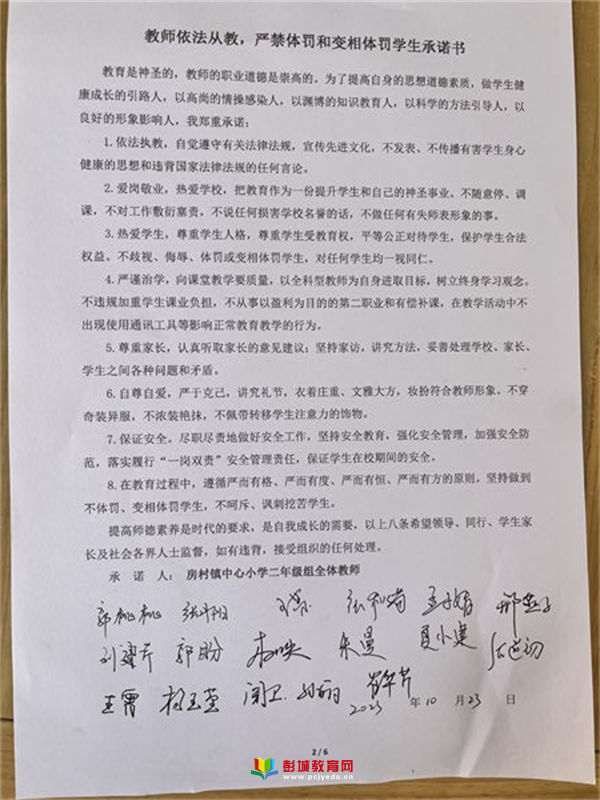 教师依法从教，严禁体罚和变相体罚学生承诺书
教育是神圣的，教师的职业道德是崇高的。为了提高自身的思想道德素质，做学生健
康成长的引路人，以高尚的情操感染人，以渊博的知识教育人，以科学的方法引导人，以
良好的形象影响人，我郑重承诺：
1.依法执教，自觉遵守有关法律法规，宣传先进文化，不发表、不传播有害学生身心
健康的思想和违背国家法律法规的任何言论。
2.爱岗敬业，热爱学校，把教育作为一份提升学生和自己的神圣事业。不随意停、调
课，不对工作敷衍塞责，不说任何损害学校名誉的话，不做任何有失师表形象的事。
3.热爱学生，尊重学生人格，尊重学生受教育权，平等公正对待学生，保护学生合法
权益。不歧视、侮辱、体罚或变相体罚学生，对任何学生均一视同仁。
4.严谨治学，向课堂教学要质量，以全科型教师为自身进取目标，树立终身学习观念。
不违规加重学生课业负担，不从事以盈利为目的的第二职业和有偿补课，在教学活动中不
出现使用通讯工具等影响正常教育教学的行为。
5.尊重家长，认真听取家长的意见建议；坚持家访，讲究方法，妥善处理学校、家长、
学生之间各种问题和矛盾。
6.自尊自爱，严于克己，讲究礼节，衣着庄重、文雅大方，妆扮符合教师形象。不穿
奇装异服，不浓装艳抹，不佩带转移学生注意力的饰物。
7.保证安全。尽职尽责地做好安全工作，坚持安全教育，强化安全管理，加强安全防
范，落实履行“一岗双责”安全管理责任，保证学生在校期间的安全。
8.在教育过程中，遵循严而有格、严而有度、严而有恒、严而有方的原则。坚持做到
不体罚、变相体罚学生，不呵斥、讽刺挖苦学生。
提高师德素养是时代的要求，是自我成长的需要，以上八条希望领导、同行、学生家
长及社会各界人士监督，如有违背，接受组织的任何处理。
承 诺 人：房村镇中心小学二年级组全体教师
郭桃桃
郭盼 朱曼 夏小建
王霄 杨玉莹 闫卫
2023 年 10 月 23 日
2 / 6
彭城教育网
www.pcjyedu.cn